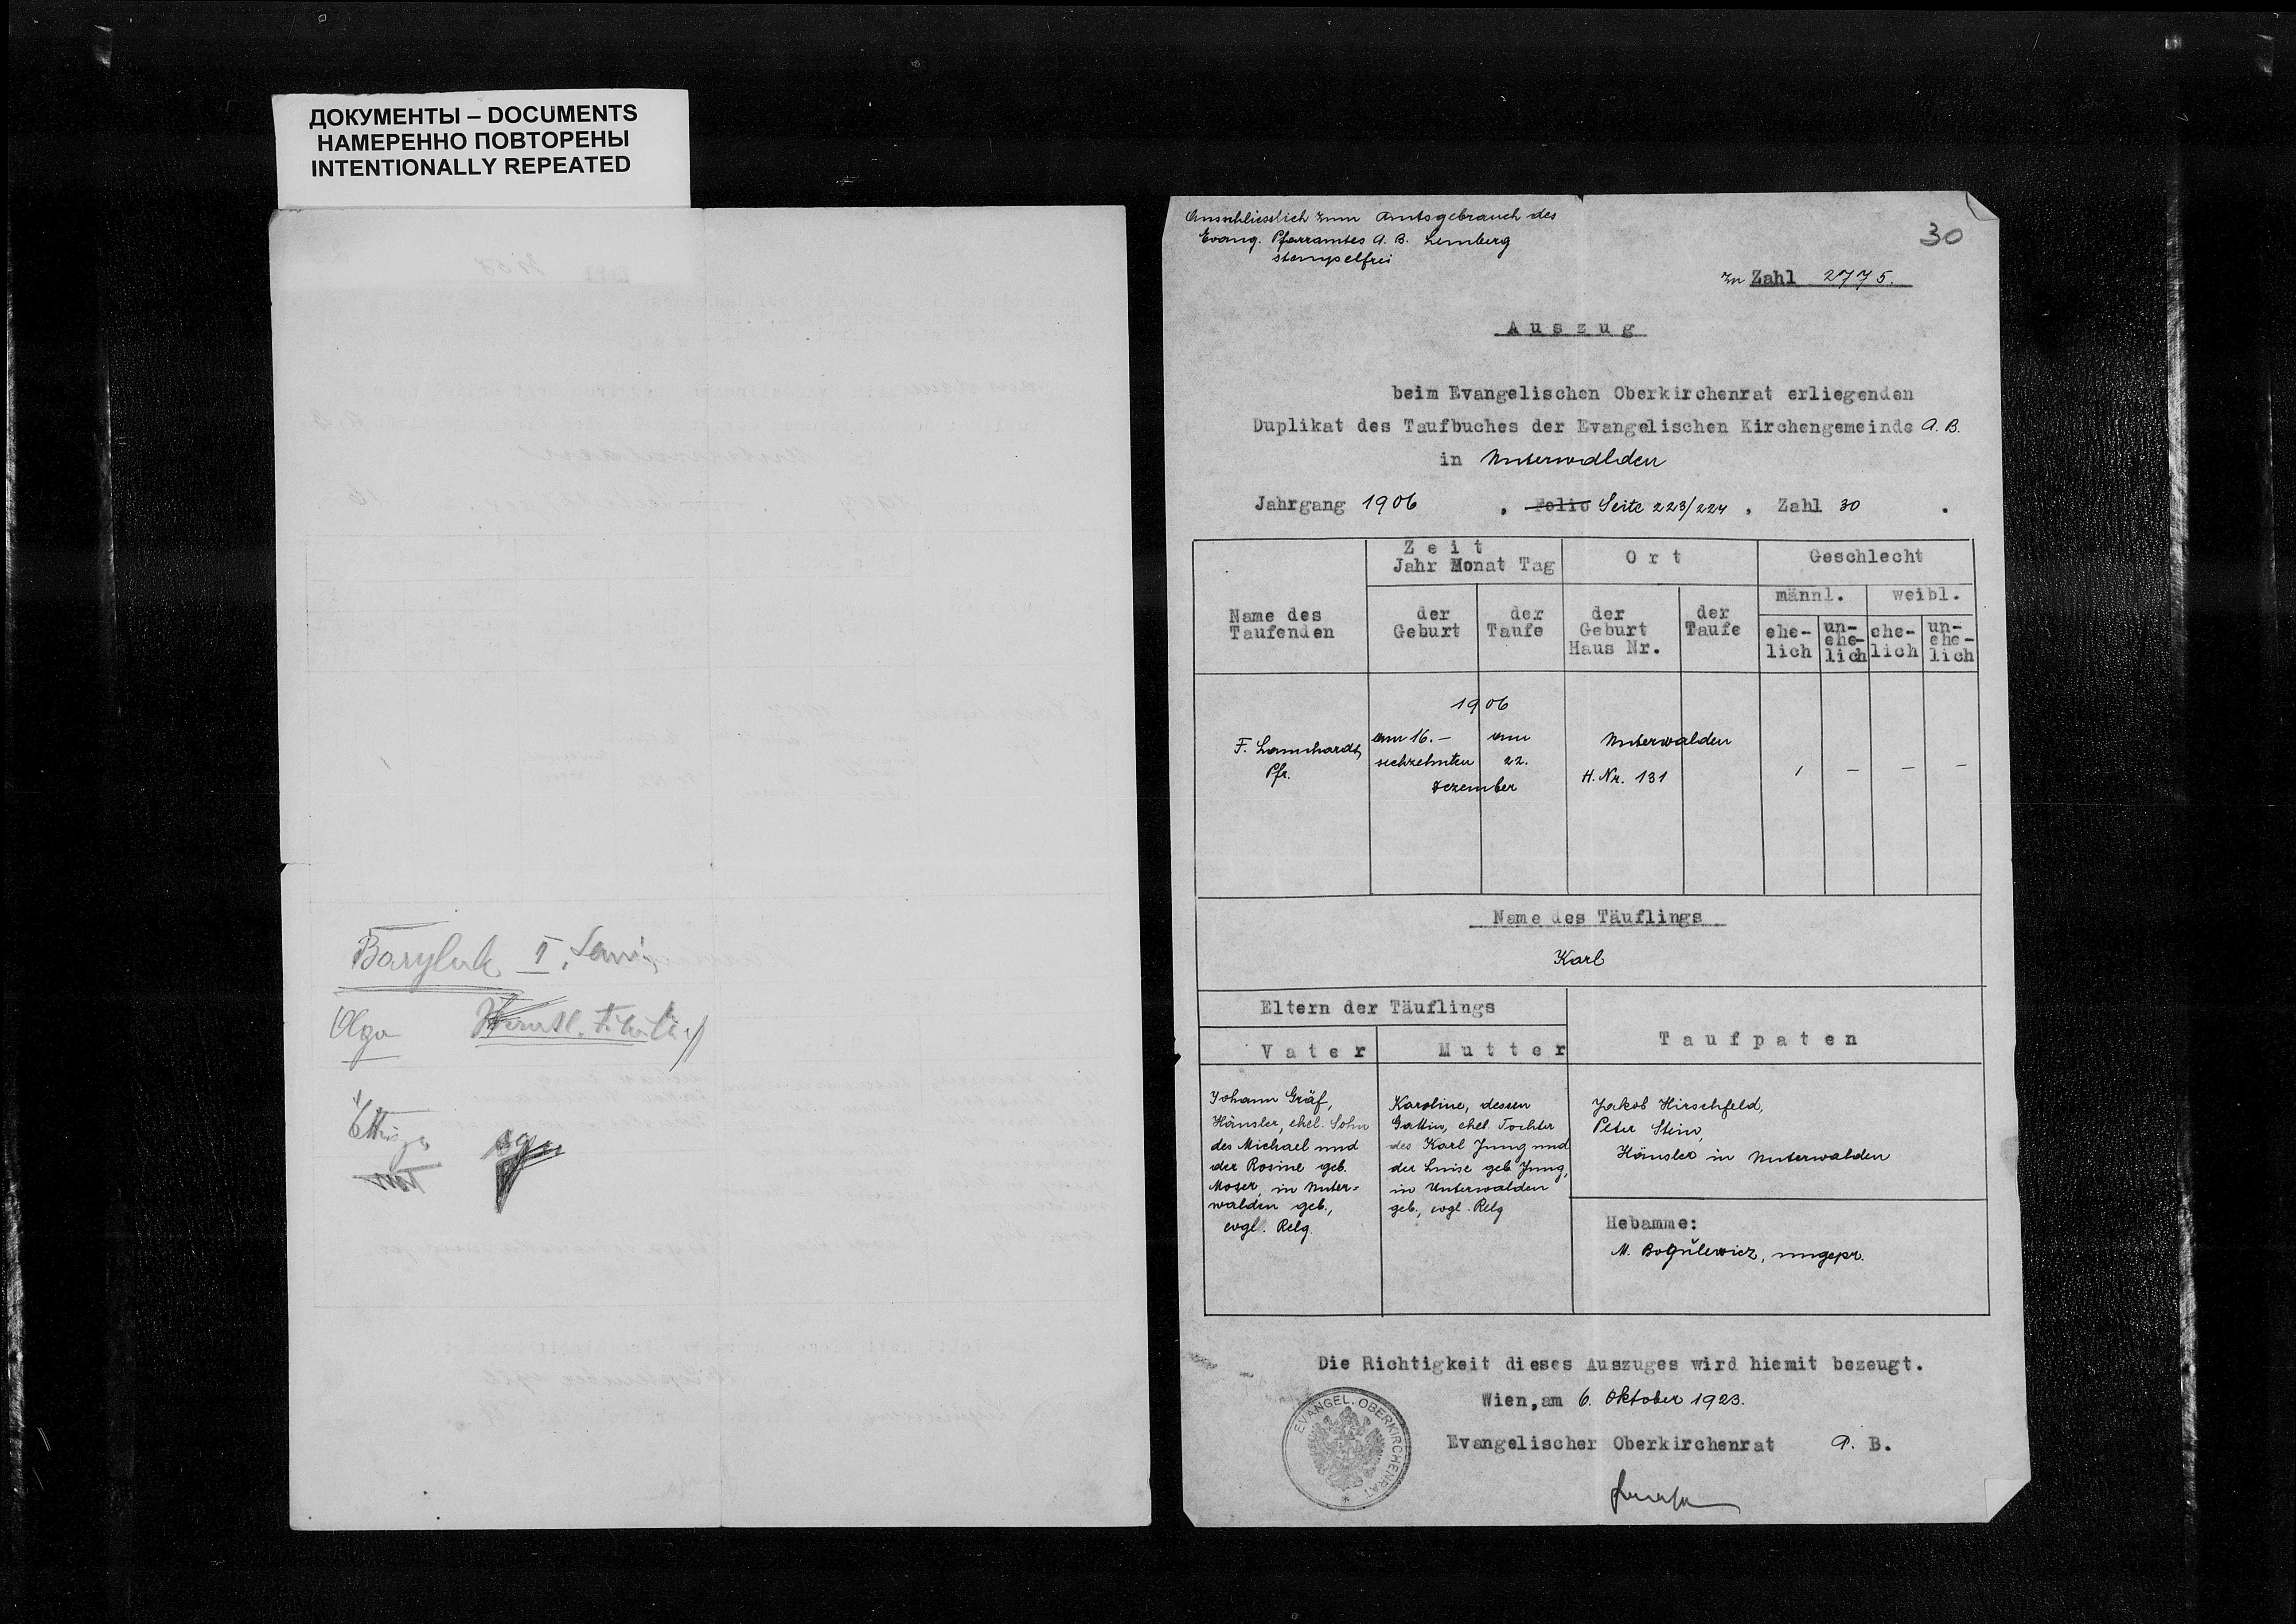 ДОКУМЕНТЫ – DOCUMENTS
НАМЕРЕННО ПОВТОРЕНЫ
INTENTIONALLY REPEATED
Baryluk II.
Olga
Ausschliesslich zum Amtsgebrauch des
Evang. Pfarramtes A. B. Lemberg
stempelfrei
30
zu Zahl 2775.
Auszug
beim Evangelischen Oberkirchenrat erliegenden
Duplikat des Taufbuches der Evangelischen Kirchengemeinde A. B.
in Unterwalden
Jahrgang 1906 , Folio Seite 223/224 , Zahl 30 .
Name des
Taufenden
Zeit
Jahr Monat Tag
der
Geburt
der
Taufe
Ort
der
Geburt
Haus Nr.
der
Taufe
Geschlecht
männl.
weibl.
ehe-
lich
un-
ehe-
lich
ehe-
lich
un-
ehe-
lich
F. Lannhardt,
Pfr.
1906
am 16. –
sechzehnten
am
22.
Dezember
Unterwalden
H. Nr. 131
1 – – –
Name des Täuflings
Karl
Eltern der Täuflings
Vater
Mutter
Taufpaten
Johann Gräf,
Häusler, ehel. Sohn
des Michael und
der Rosine geb.
Moser, in Unter=
walden geb.,
evgl. Relg.
Karoline, dessen
Gattin, ehel. Tochter
des Karl Jung und
der Luise geb Jung,
in Unterwalden
geb., evgl. Relg
Jakob Hirschfeld,
Peter Stein,
Häusler in Unterwalden
Hebamme:
M. Bogulewicz, ungepr.
Die Richtigkeit dieses Auszuges wird hiemit bezeugt.
Wien, am 6. Oktober 1923.
Evangelischer Oberkirchenrat A. B.
EVANGEL. OBERKIRCHENRAT